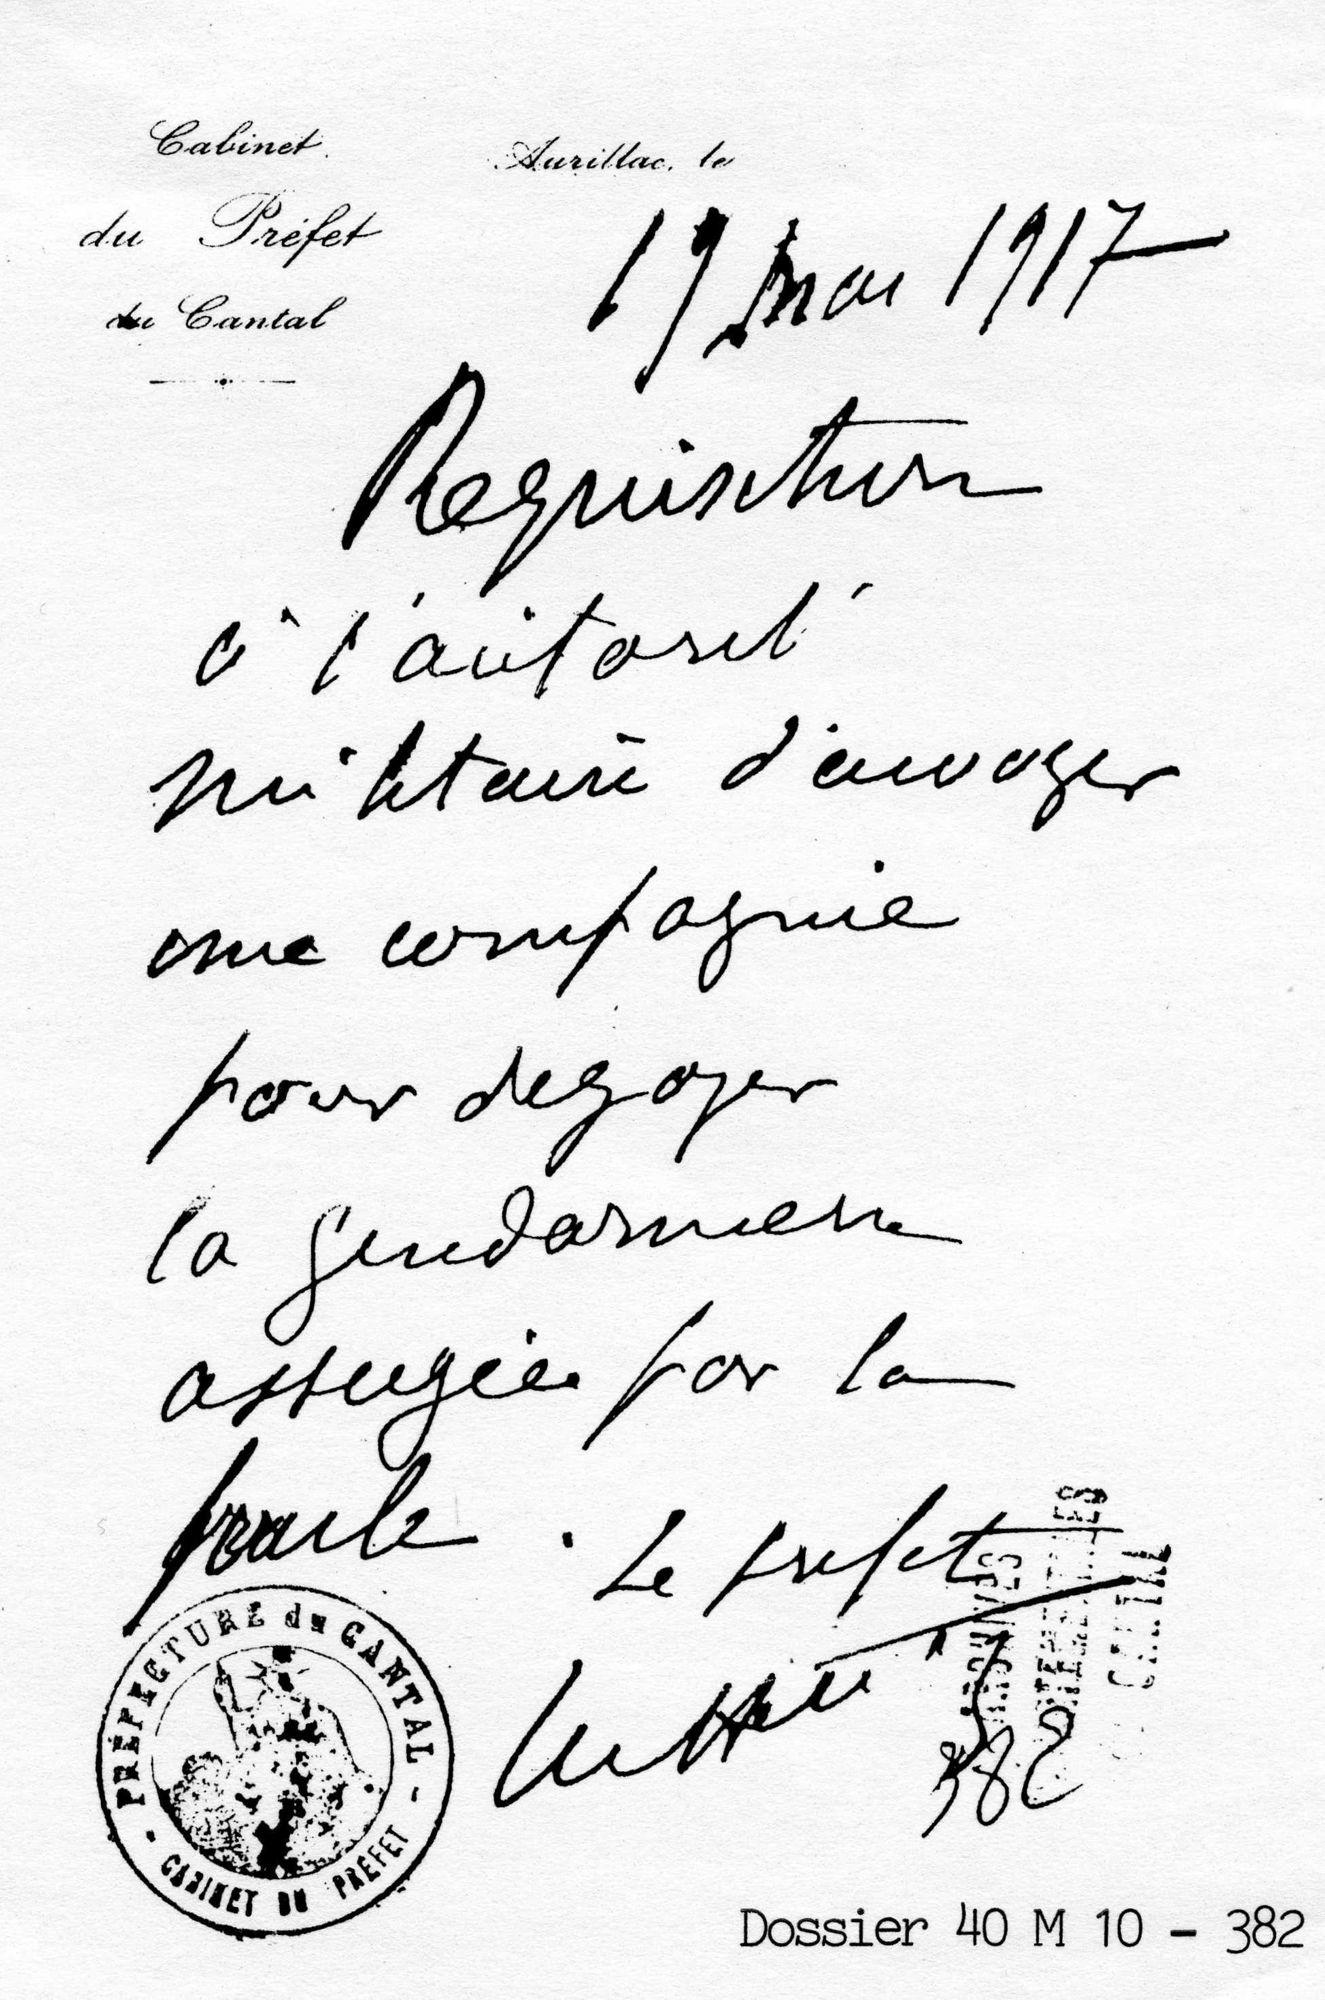 Cabinet
du Préfet
du Cantal
Aurillac, le
19 mai 1917
Requisition
à l'autorité
militaire d'envoyer
une compagnie
pour degager
la gendarmerie
assiegée par la
foule. Le prefet
PRÉFECTURE du CANTAL
CABINET DU PRÉFET
ARCHIVES
CANTAL
382
Dossier 40 M 10 - 382